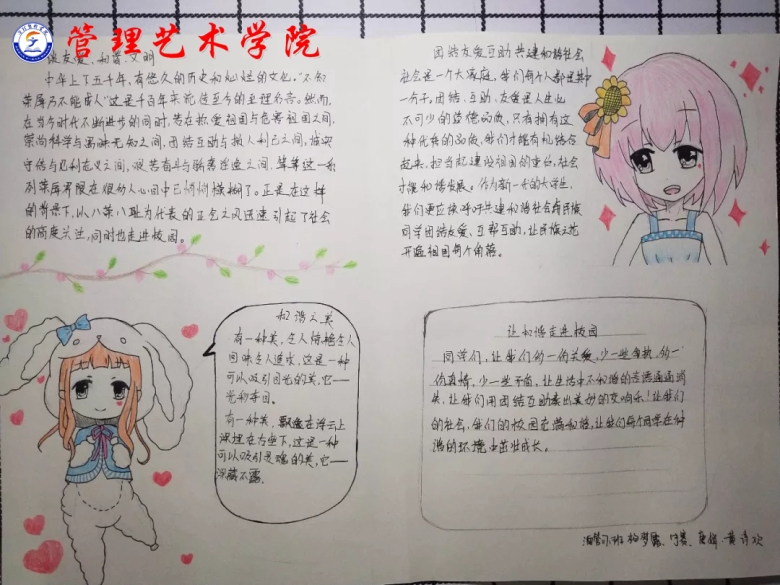 管理艺术学院
谈友爱、和睦、文明
中华上下五千年,有悠久的历史和灿烂的文化。“不知
荣辱乃不能成人”这是千百年来流传至今的至理名言。然而,
在当今时代不断进步的同时,若在热爱祖国与危害祖国之间,
崇尚科学与愚昧无知之间,团结互助与损人利己之间,诚实
守信与见利忘义之间,艰苦奋斗与骄奢淫逸之间,等等这一系
列荣辱界限在很多人心目中已悄悄模糊了。正是在这样
的背景下,以八荣八耻为代表的正气之风迅速引起了社会
的高度关注,同时也走进校园。
团结友爱互助共建和谐社会
社会是一个大家庭,我们每个人都是其中
一份子,团结、互助、友爱是人生必
不可少的道德品质,只有拥有这
种优秀的品质,我们才能有机结合
起来,担当起建设祖国的重任,社会
才能和谐发展。作为新一代的大学生,
我们更应该呼吁共建和谐社会各民族
同学团结友爱、互帮互助,让民族之花
开遍祖国每个角落。
和谐之美
有一种美,令人愉悦令人
回味令人追求,这是一种
可以吸引目光的美,它——
光彩夺目。
有一种美,飘逸在浮云上
深埋在力量下,这是一种
可以吸引灵魂的美,它——
深藏不露。
让和谐走进校园
同学们,让我们多一份关爱,少一些争执,多一
份真情,少一些矛盾,让生活中不和谐的音语通通消
失,让我们用团结互助奏出美妙的交响乐!让我们
的社会,我们的校园充满和谐,让我们每个同学在和
谐的环境中茁壮成长。